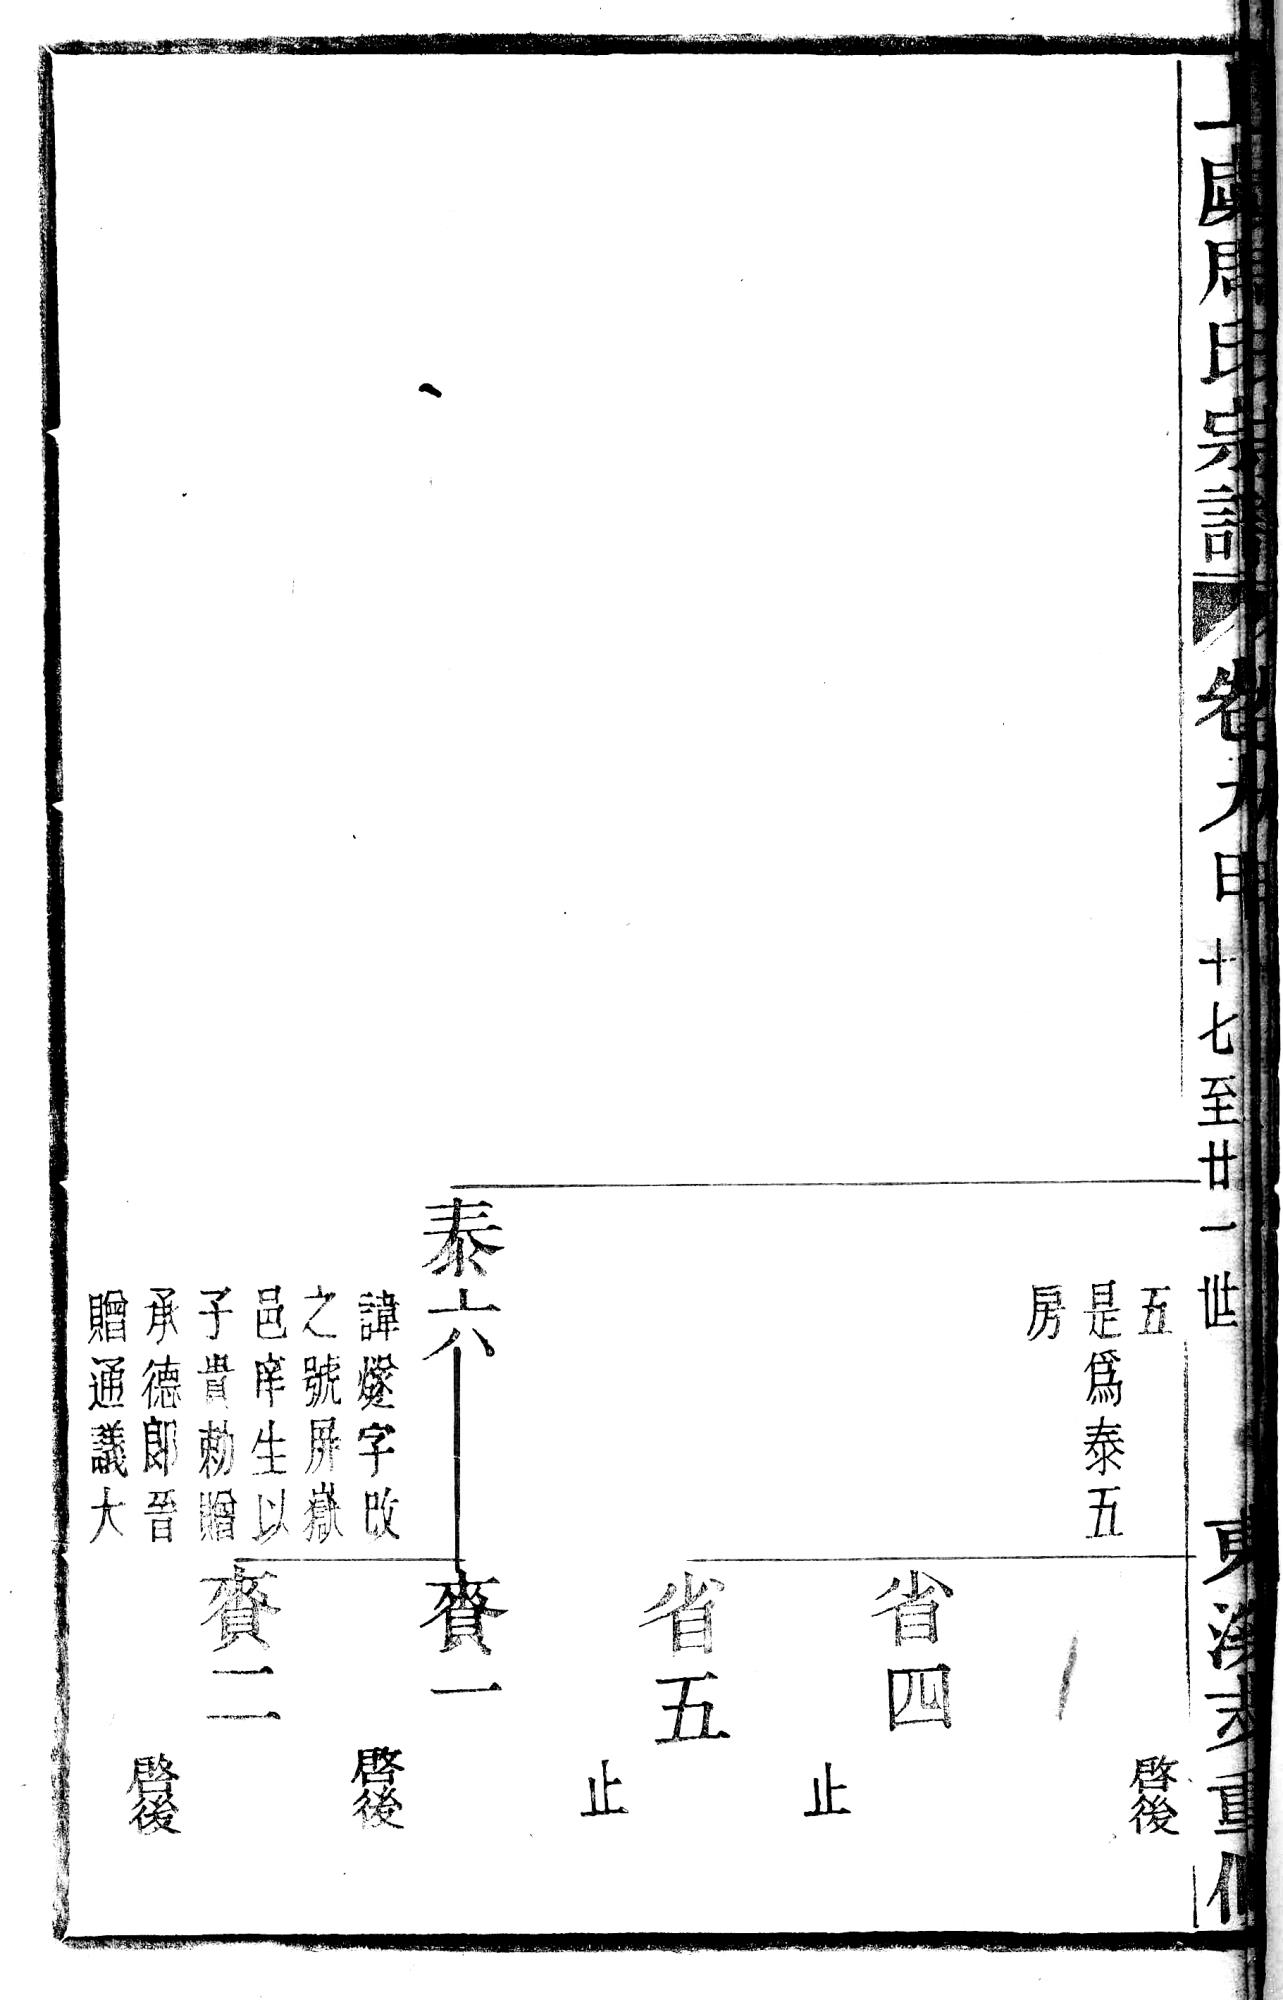 上虞周氏宗譜
卷九中
十七至廿一世
東漢天重修
五
是為泰五
房
啓後
省四
止
省五
止
泰六
諱燧字改
之號屏嶽
邑庠生以
子貴勅贈
承德郎晉
贈通議大
賚一
啓後
賚二
啓後